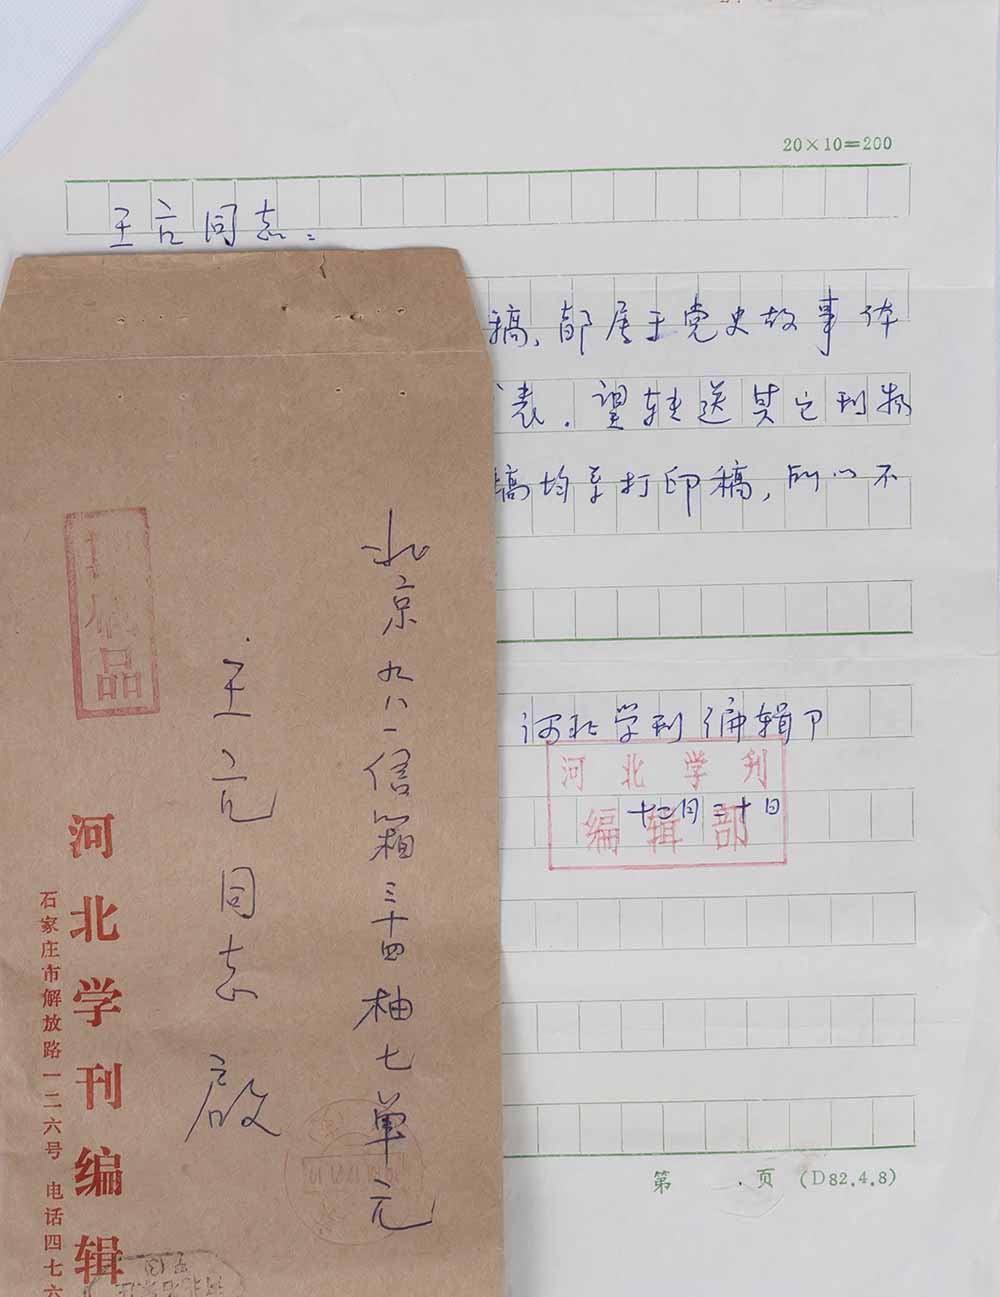 20×10=200
王亢同志：
稿，都属于党史故事体
表．望转送其它刊物
稿均系打印稿，所以不
河北学刊编辑部
河北学刊
编辑部
十二月二十日
第 页 (D82.4.8)
北京九八一信箱三十四柚七单元
王亢同志 启
印刷品
河北学刊编辑
石家庄市解放路一二六号 电话四七六